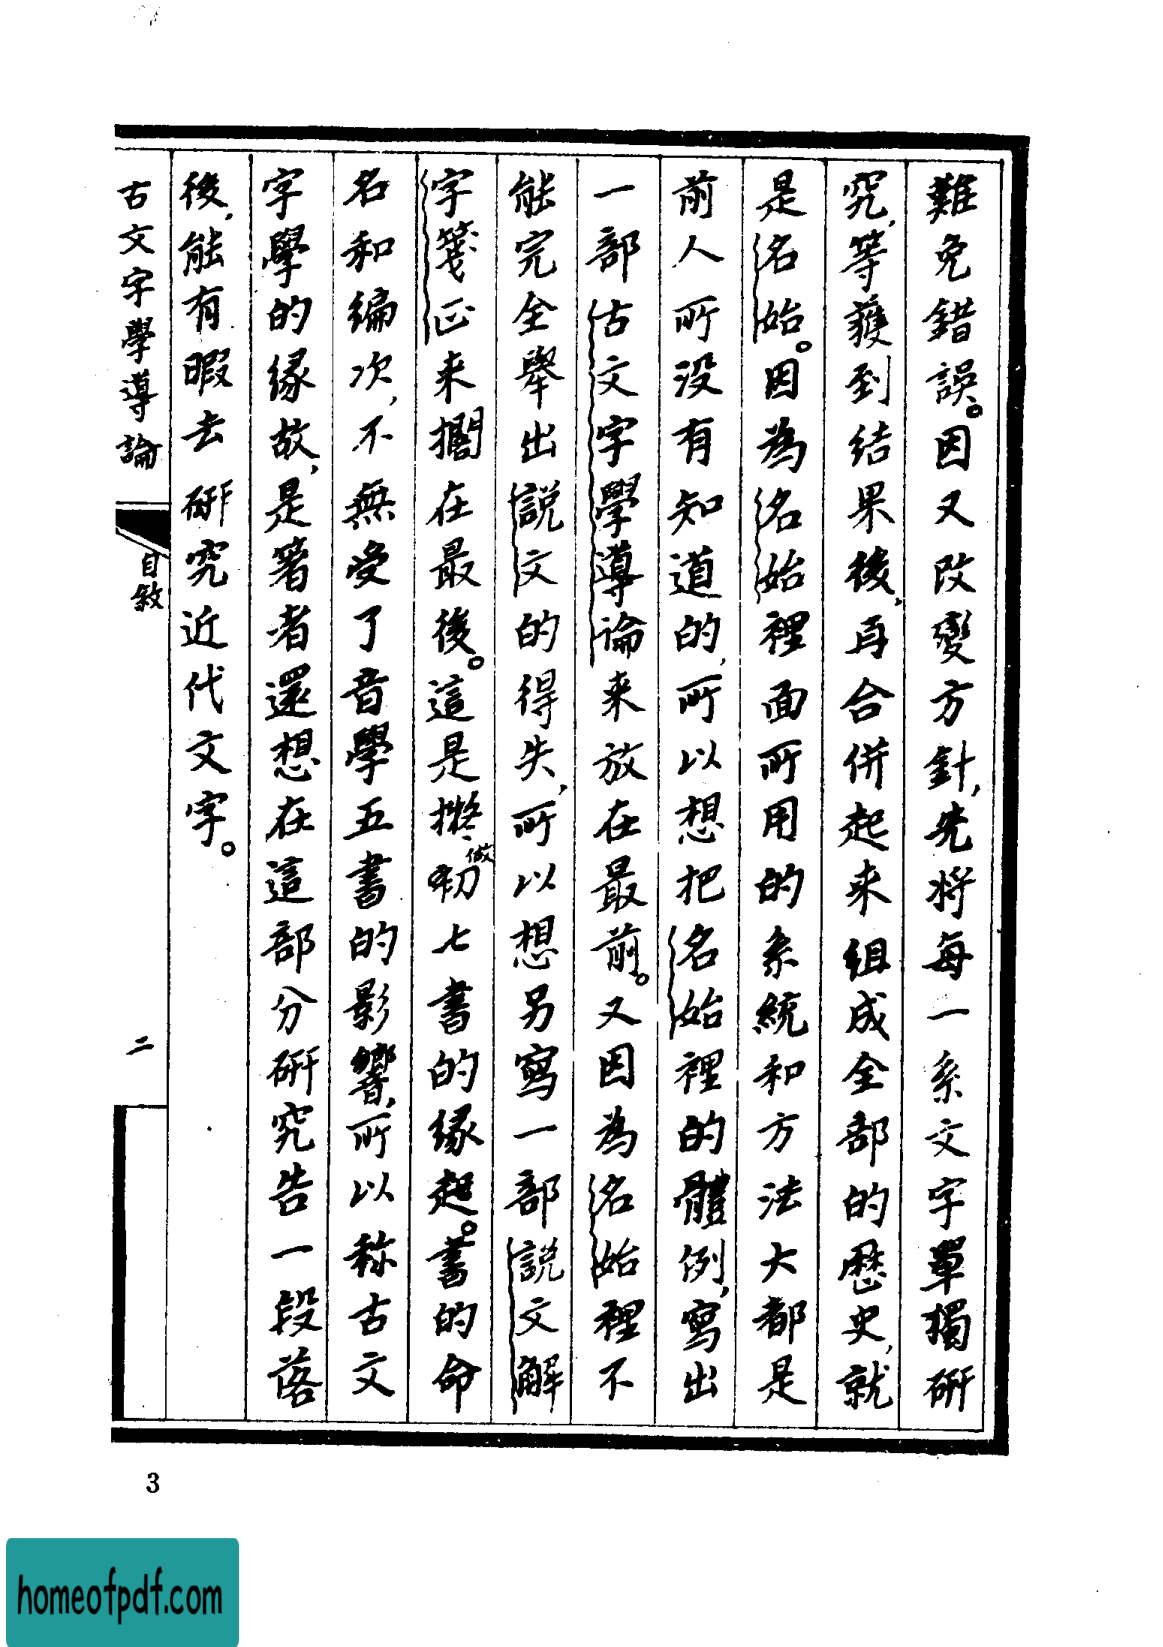 難免錯誤。因又改變方針，先將每一系文字單獨研
究，等獲到結果後，再合併起来組成全部的歷史，就
是名始。因為名始裡面所用的系統和方法大都是
前人所没有知道的，所以想把名始裡的體例，寫出
一部古文字學導論来放在最前。又因為名始裡不
能完全舉出説文的得失，所以想另寫一部説文解
字箋正来擱在最後。這是擬做初七書的缘起。書的命
名和编次，不無受了音學五書的影響，所以称古文
字學的缘故，是著者還想在這部分研究告一段落
後，能有暇去研究近代文字。
古文字學導論
自敘
二
3
homeofpdf.com